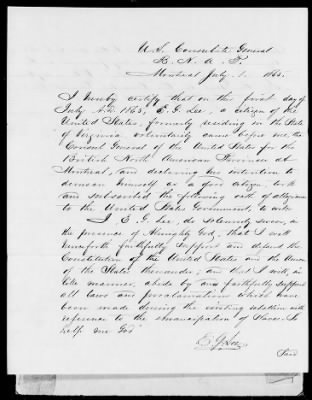 U.S. Consulate General
B. N. A. P.
Montreal July 1. 1865.
I hereby certify that on the first day of
July A.D. 1865, E. G. Lee, a citizen of the
United States, formerly residing in the State
of Virginia voluntarily came before me, the
Consul General of the United States for the
British North American Provinces at
Montreal, and declaring his intention to
demean himself as a good citizen, took
and subscribed the following oath of allegiance
to the United States Government, to wit:
I, E. G. Lee, do solemnly swear, in
the presence of Almighty God, that I will
henceforth faithfully support and defend the
Constitution of the United States and the Union
of the States thereunder; and that I will, in
like manner, abide by and faithfully support
all laws and proclamations which have
been made during the existing rebellion with
reference to the emancipation of Slaves. So
help me God"
E. G. Lee